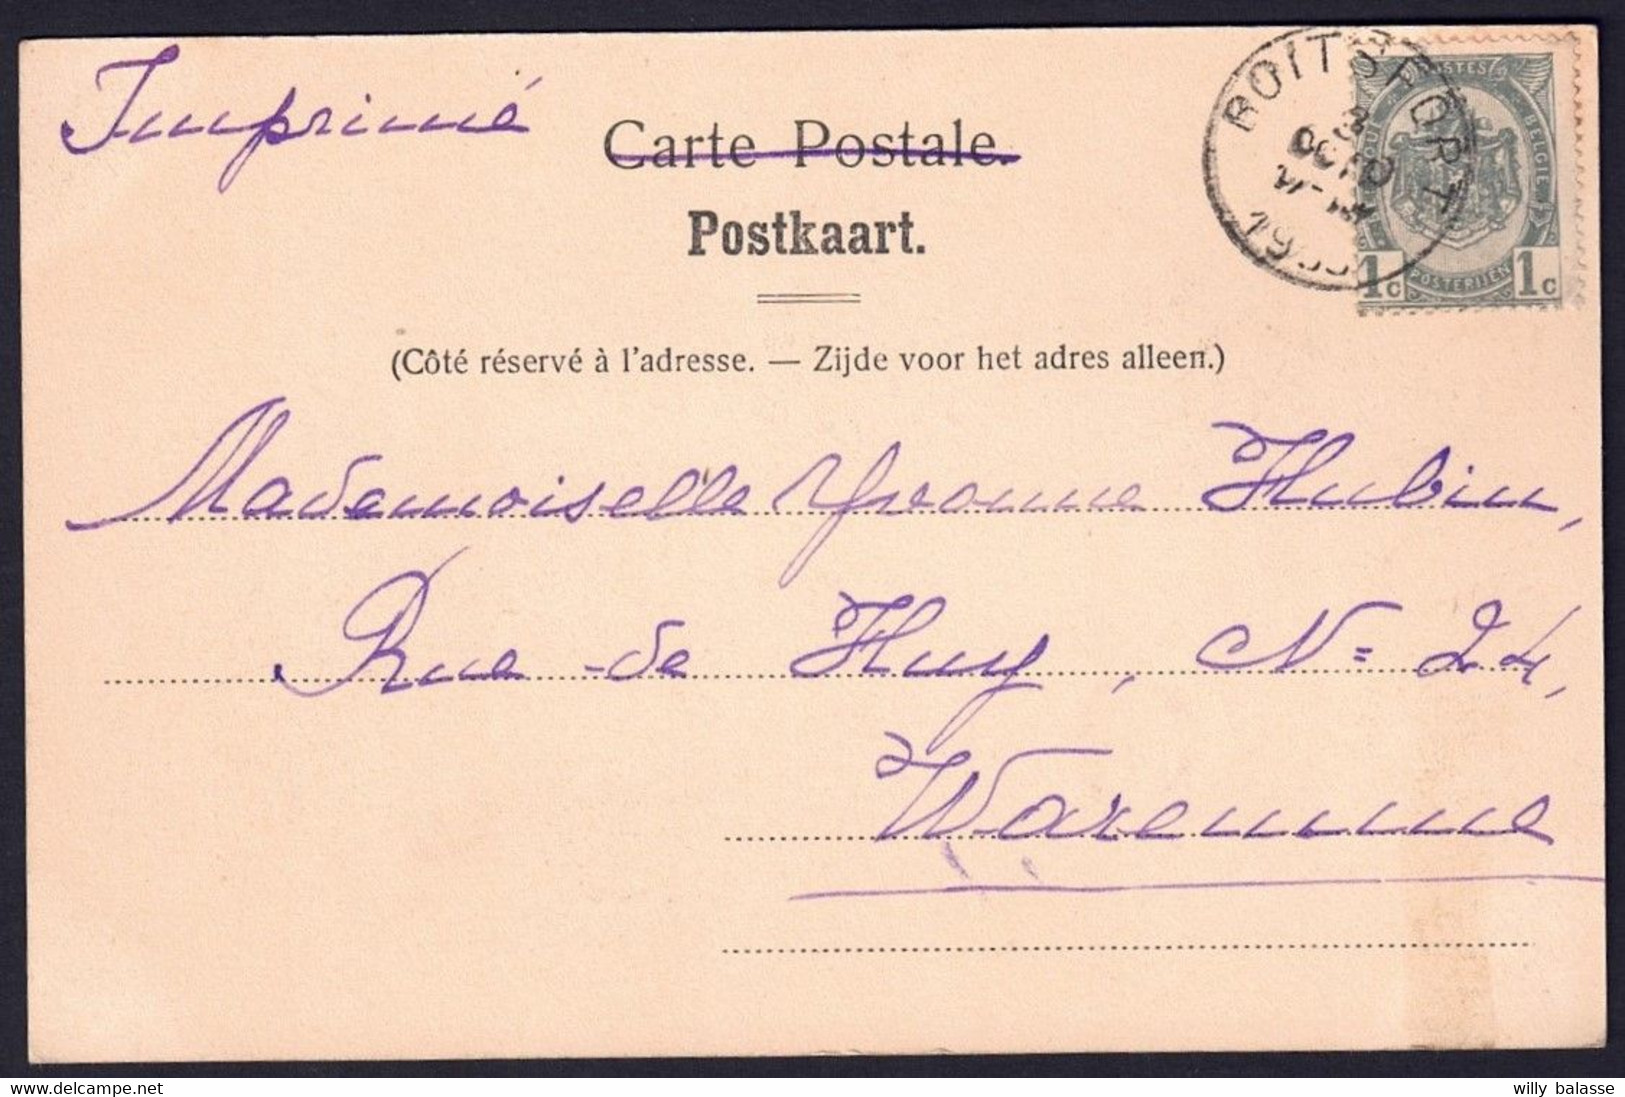 Imprimé
Carte Postale.
Postkaart.
BOITSFORT
POSTES
BELGIE
POSTERIJEN
1c 1c
(Côté réservé à l'adresse. — Zijde voor het adres alleen.)
Mademoiselle Yvonne Hubin,
Rue de Huy, N= 24,
Waremme
delcampe.net
willy balasse